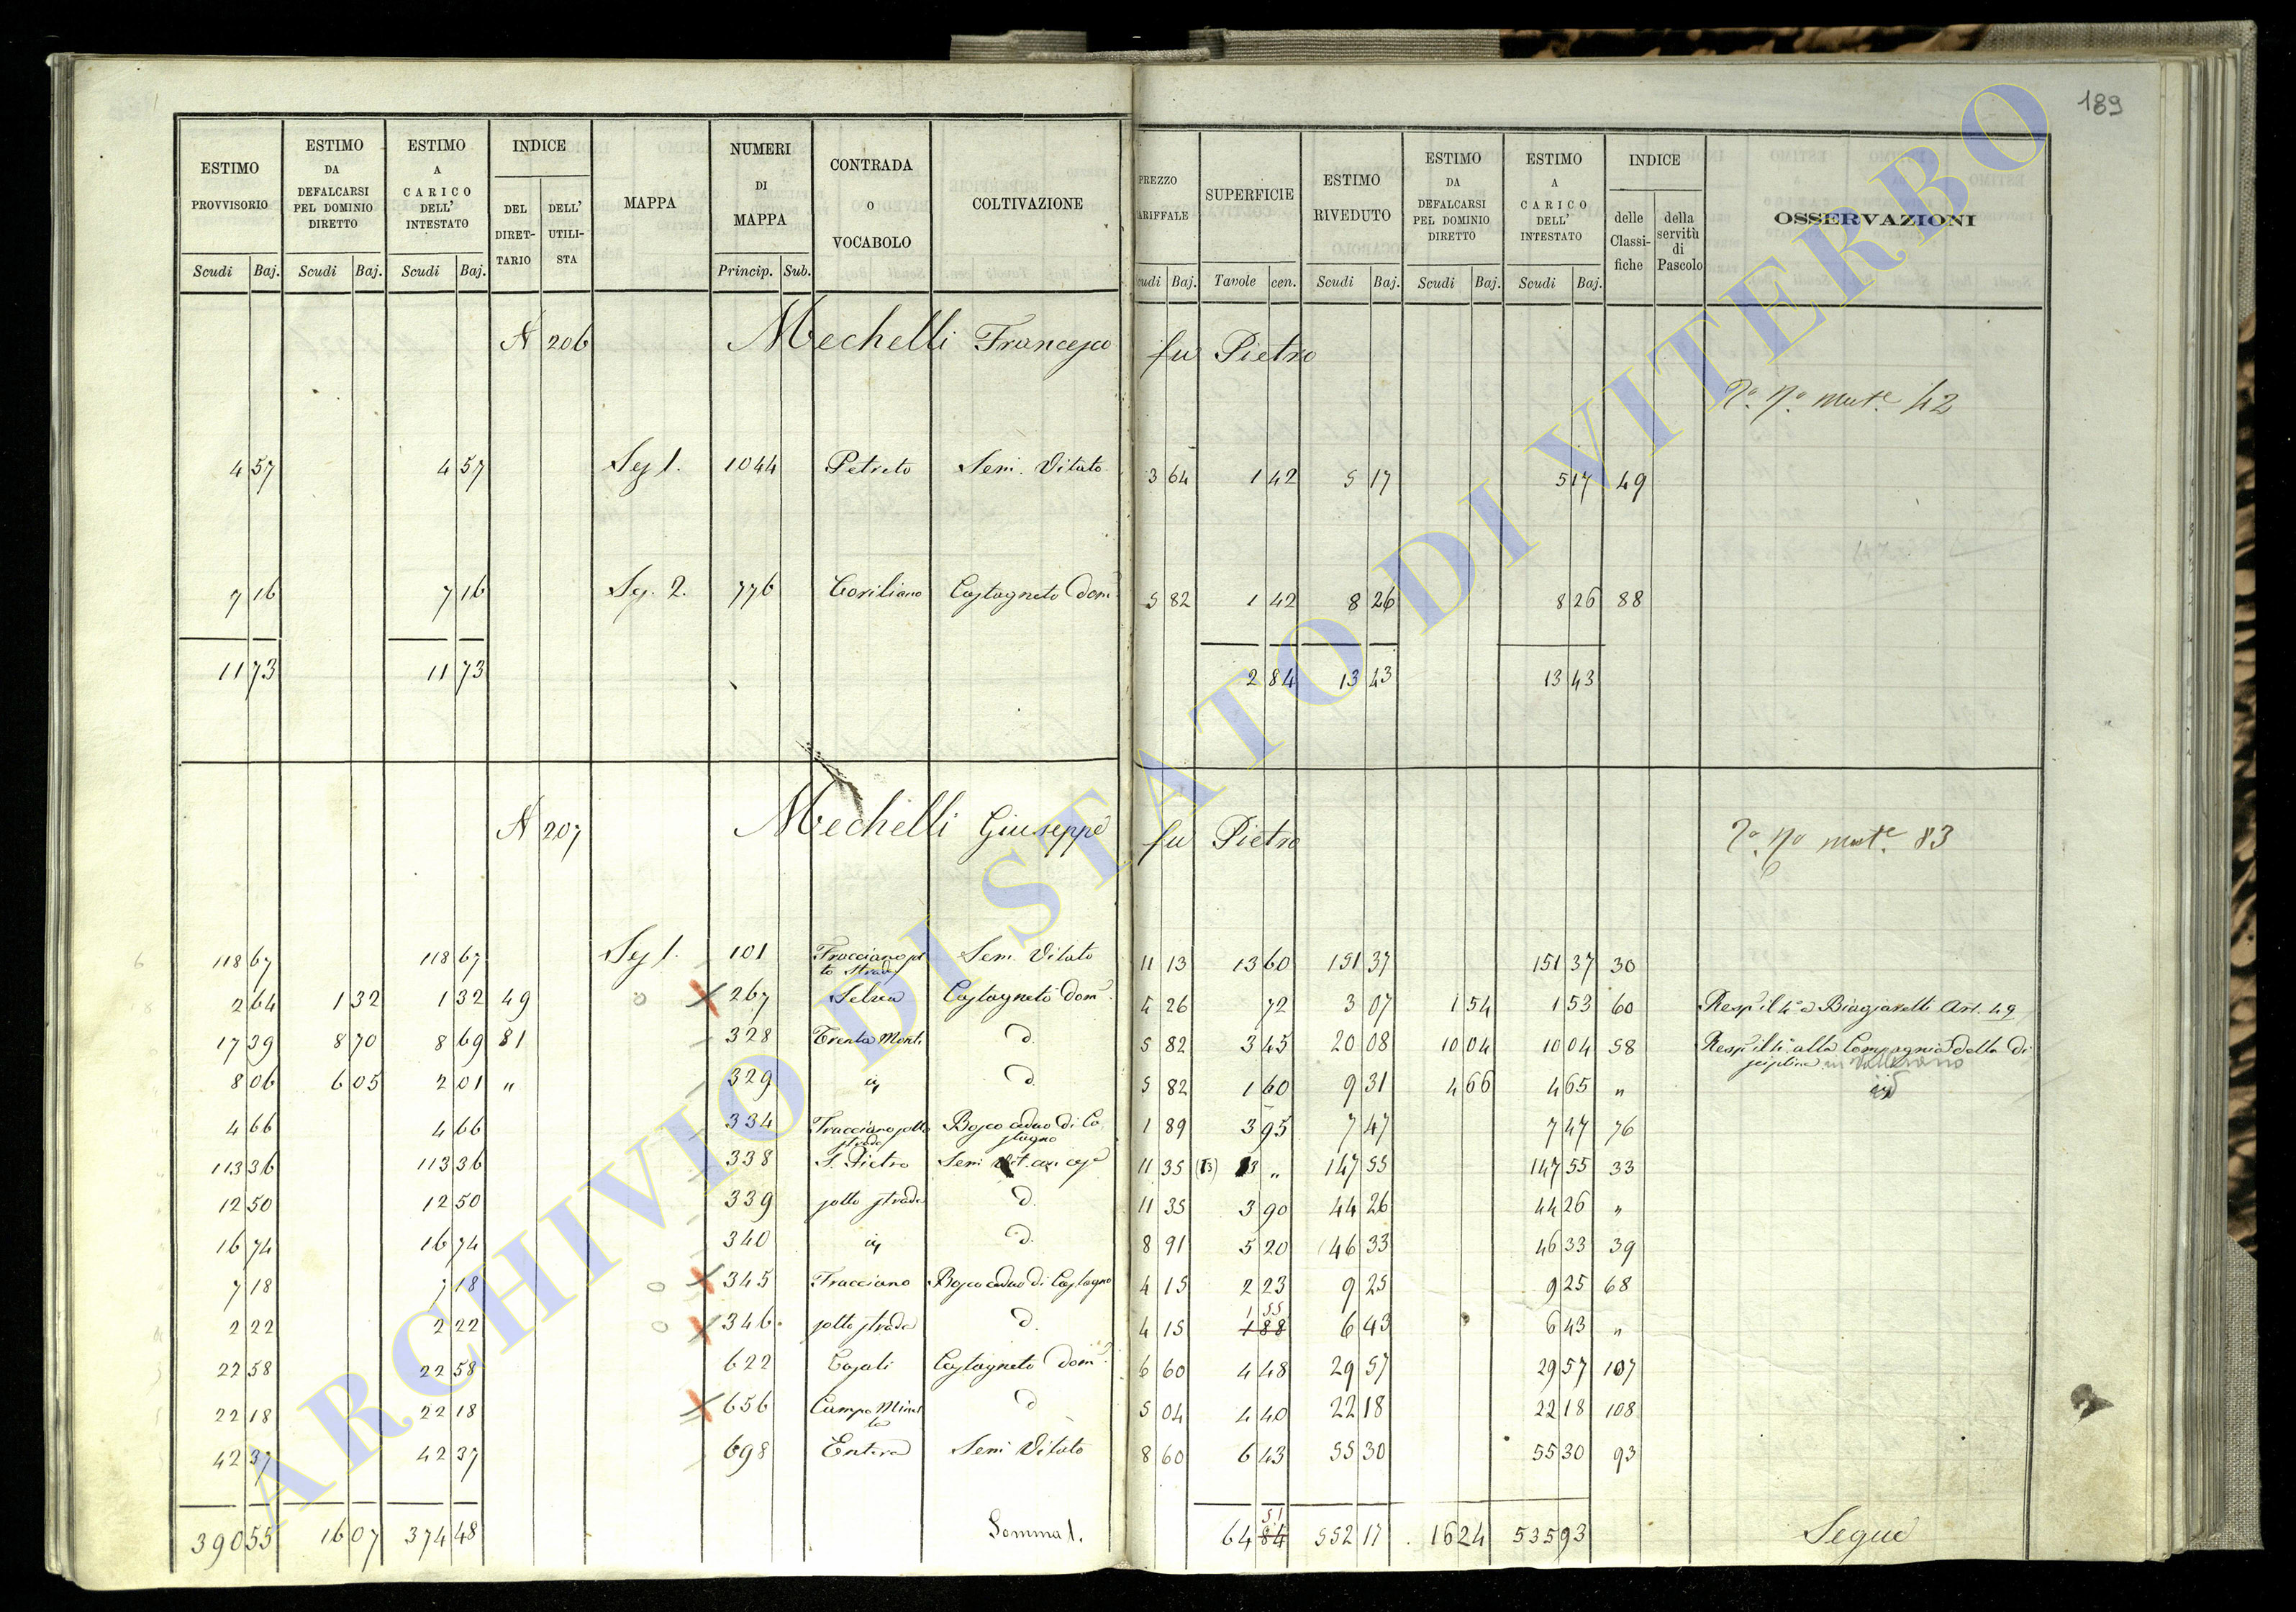 189
ESTIMO PROVVISORIO | ESTIMO DA DEFALCARSI PEL DOMINIO DIRETTO | ESTIMO A CARICO DELL' INTESTATO | INDICE | MAPPA | NUMERI DI MAPPA | CONTRADA O VOCABOLO | COLTIVAZIONE | PREZZO ARIFFALE | SUPERFICIE | ESTIMO RIVEDUTO | ESTIMO DA DEFALCARSI PEL DOMINIO DIRETTO | ESTIMO A CARICO DELL' INTESTATO | INDICE | OSSERVAZIONI
DEL DIRETTARIO | DELL' UTILISTA | delle Classifiche | della servitù di Pascolo
Scudi Baj. | Scudi Baj. | Scudi Baj. | Princip. Sub. | cudi Baj. | Tavole cen. | Scudi Baj. | Scudi Baj. | Scudi Baj.
N 206 Mechelli Francesco fu Pietro
mut.e 42
4 57 | 4 57 | Sez 1. | 1044 | Petreto | Sem. Vitato | 3 64 | 1 42 | 5 17 | 5 17 | 49
7 16 | 7 16 | Sez. 2. | 776 | Coriliano | Castagneto dom | 5 82 | 1 42 | 8 26 | 8 26 | 88
11 73 | 11 73 | 2 84 | 13 43 | 13 43
N 207 Mechelli Giuseppe fu Pietro
mut.e 83
118 67 | 118 67 | Sez 1. | 101 | Fracciano sotto strada | Sem. Vitato | 11 13 | 13 60 | 151 37 | 151 37 | 30
2 64 | 1 32 | 1 32 | 49 | 267 | Selva | Castagneto dom | 4 26 | 72 | 3 07 | 1 54 | 1 53 | 60 | Resp il 4° a Biagiarelli Art. 49
17 39 | 8 70 | 8 69 | 81 | 328 | Trenta Monti | d. | 5 82 | 3 45 | 20 08 | 10 04 | 10 04 | 58 | alla Compagnia della Di
sciplina in Vallerano
8 06 | 6 05 | 2 01 | " | 329 | d. | 5 82 | 1 60 | 9 31 | 4 66 | 4 65 | "
4 66 | 4 66 | 334 | Fracciano sotto strada | Bosco ceduo di Castagno | 1 89 | 3 95 | 7 47 | 7 47 | 76
113 36 | 113 36 | 338 | S. Pietro | Sem Vit. | 11 35 | (13) 13 " | 147 55 | 147 55 | 33
12 50 | 12 50 | 339 | sotto strada | d. | 11 35 | 3 90 | 44 26 | 44 26 | "
16 74 | 16 74 | 340 | d. | 8 91 | 5 20 | 46 33 | 46 33 | 39
7 18 | 7 18 | 345 | Fracciano | Bosco ceduo di Castagno | 4 15 | 2 23 | 9 25 | 9 25 | 68
2 22 | 2 22 | 346 | sotto strada | d. | 4 15 | 1 55 1 88 | 6 43 | 6 43 | "
22 58 | 22 58 | 622 | Casali | Castagneto dom | 6 60 | 4 48 | 29 57 | 29 57 | 107
22 18 | 22 18 | 656 | Campo | d | 5 04 | 4 40 | 22 18 | 22 18 | 108
42 37 | 42 37 | 698 | Entera | Sem Vitato | 8 60 | 6 43 | 55 30 | 55 30 | 93
390 55 | 16 07 | 374 48 | Somma 1. | 64 51 84 | 552 17 | 16 24 | 535 93 | Segue
ARCHIVIO DI STATO DI VITERBO